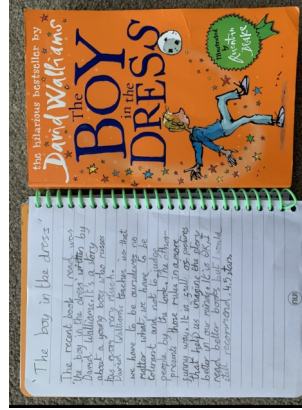 the hilarious bestseller by
David Walliams
The
BOY
in the
DRESS
Illustrated by
Quentin Blake
'The boy in the dress'
The recent book I read was
'the boy in the dress' written by
David Walliams. It's a story
about a young boy who misses
his
David Walliams teaches us that
we have to be ourselves no
matter what. we have to be
tolerant and not to judge
people by the look. The
presents those rules in a more
funny way. It is full of pictures
that help us imagine the story
better in our minds. I've
read better books but I would
still recommend it. 4,5 stars.